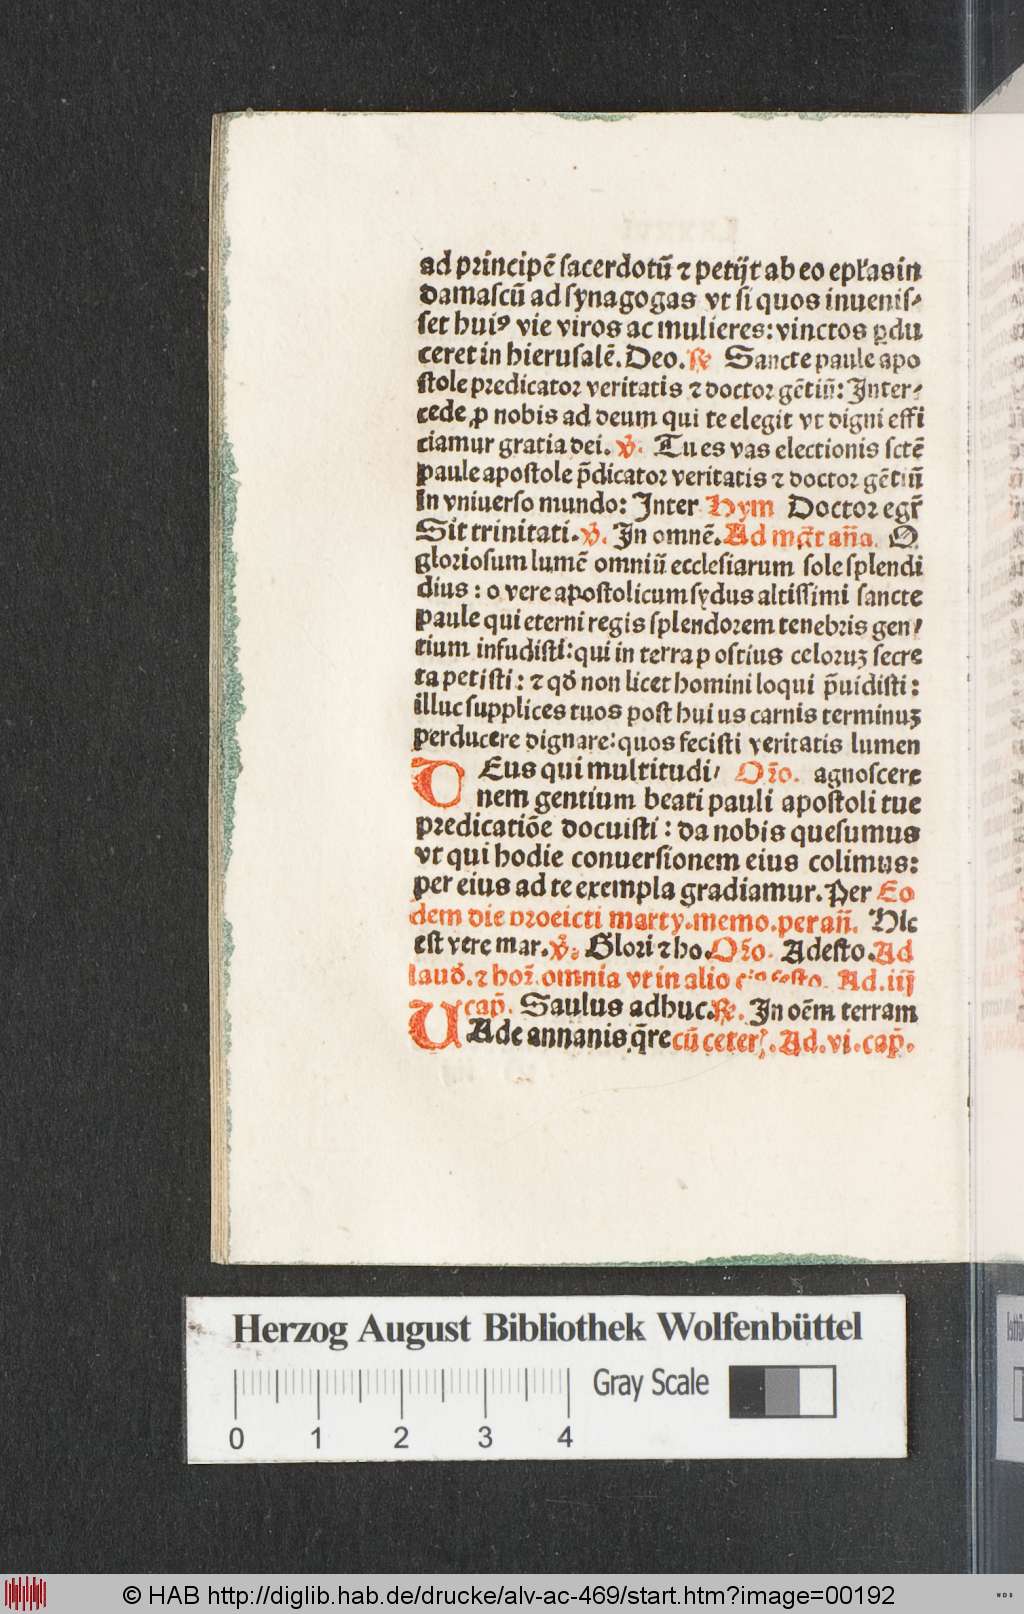 ad principē sacerdotū ⁊ petijt ab eo ep̄las in
damascū ad synagogas vt si quos inuenis⸗
set huiꝰ vie viros ac mulieres: vinctos ꝑdu
ceret in hierusalē. Deo. ℟ Sancte paule apo
stole predicator veritatis ⁊ doctor gētiū: Inter⸗
cede ꝓ nobis ad deum qui te elegit vt digni effi
ciamur gratia dei. ℣. Tu es vas electionis sctē
paule apostole p̄dicator veritatis ⁊ doctor gētiū
in vniuerso mundo: Inter Hym Doctor egr̄
Sit trinitati. ℣. In omnē. Ad mgct̄ an̄a. O
gloriosum lumē omniū ecclesiarum sole splendi
dius: o vere apostolicum sydus altissimi sancte
paule qui eterni regis splendorem tenebris gen⸗
tium infudisti: qui in terra postius celoruꝫ secre
ta petisti: ⁊ qd̄ non licet homini loqui p̄uidisti:
illuc supplices tuos post huius carnis terminuꝫ
perducere dignare: quos fecisti veritatis lumen
DEus qui multitudi⸗ Or̄o. agnoscere
nem gentium beati pauli apostoli tue
predicatiōe docuisti: da nobis quesumus
vt qui hodie conuersionem eius colimus:
per eius ad te exempla gradiamur. Per Eo
dem die proiecti marty. memo. per an̄. Hic
est vere mar. ℣. Glori ⁊ ho. Or̄o. Adesto. Ad
laud̄. ⁊ hor̄. omnia vt in alio festo. Ad. iij
cap̄. Saulus adhuc. ℟. In oēm terram
UAde annanis q̄re cū ceter̄. Ad. vi. cap̄.
Herzog August Bibliothek Wolfenbüttel
Gray Scale
0 1 2 3 4
© HAB http://diglib.hab.de/drucke/alv-ac-469/start.htm?image=00192